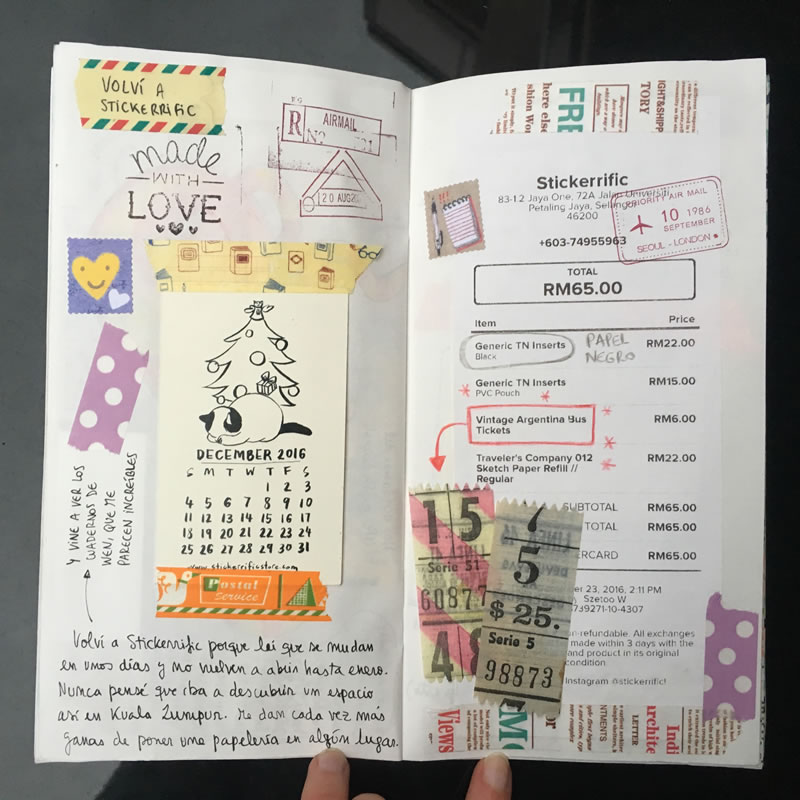 VOLVÍ A
STICKERRIFIC
made
WITH
LOVE
R
AIRMAIL
20 AUG
DECEMBER 2016
S M T W T F S
1 2 3
4 5 6 7 8 9 10
11 12 13 14 15 16 17
18 19 20 21 22 23 24
25 26 27 28 29 30 31
www.stickerrificstore.com
Postal
Service
Y VINE A VER LOS
CUADERNOS DE
WEN, QUE ME
PARECEN INCREÍBLES
Volví a Stickerrific porque leí que se mudan
en unos días y no vuelven a abrir hasta enero.
Nunca pensé que iba a descubrir un espacio
así en Kuala Lumpur. Me dan cada vez más
ganas de poner una papelería en algún lugar.
here else
shion Wo
FRE
IGHT&SHIPP
TORY
Stickerrific
83-1.2 Jaya One, 72A Jalan Universiti,
Petaling Jaya, Selangor
46200
+603-74955963
PRIORITY AIR MAIL
10 1986
SEPTEMBER
SEOUL - LONDON
TOTAL
RM65.00
Item Price
Generic TN Inserts RM22.00
Black
PAPEL
NEGRO
Generic TN Inserts RM15.00
PVC Pouch
Vintage Argentina Bus RM6.00
Tickets
Traveler's Company 012 RM22.00
Sketch Paper Refill //
Regular
SUBTOTAL RM65.00
TOTAL RM65.00
ERCARD RM65.00
er 23, 2016, 2:11 PM
Szetoo W
739271-10-4307
n-refundable. All exchanges
made within 3 days with the
and product in its original
condition
Instagram @stickerrific!
15
Serie 51
60877
48
7
5
$ 25.
Serie 5
98873
Views
MENTS
LETTER
archite
Indi